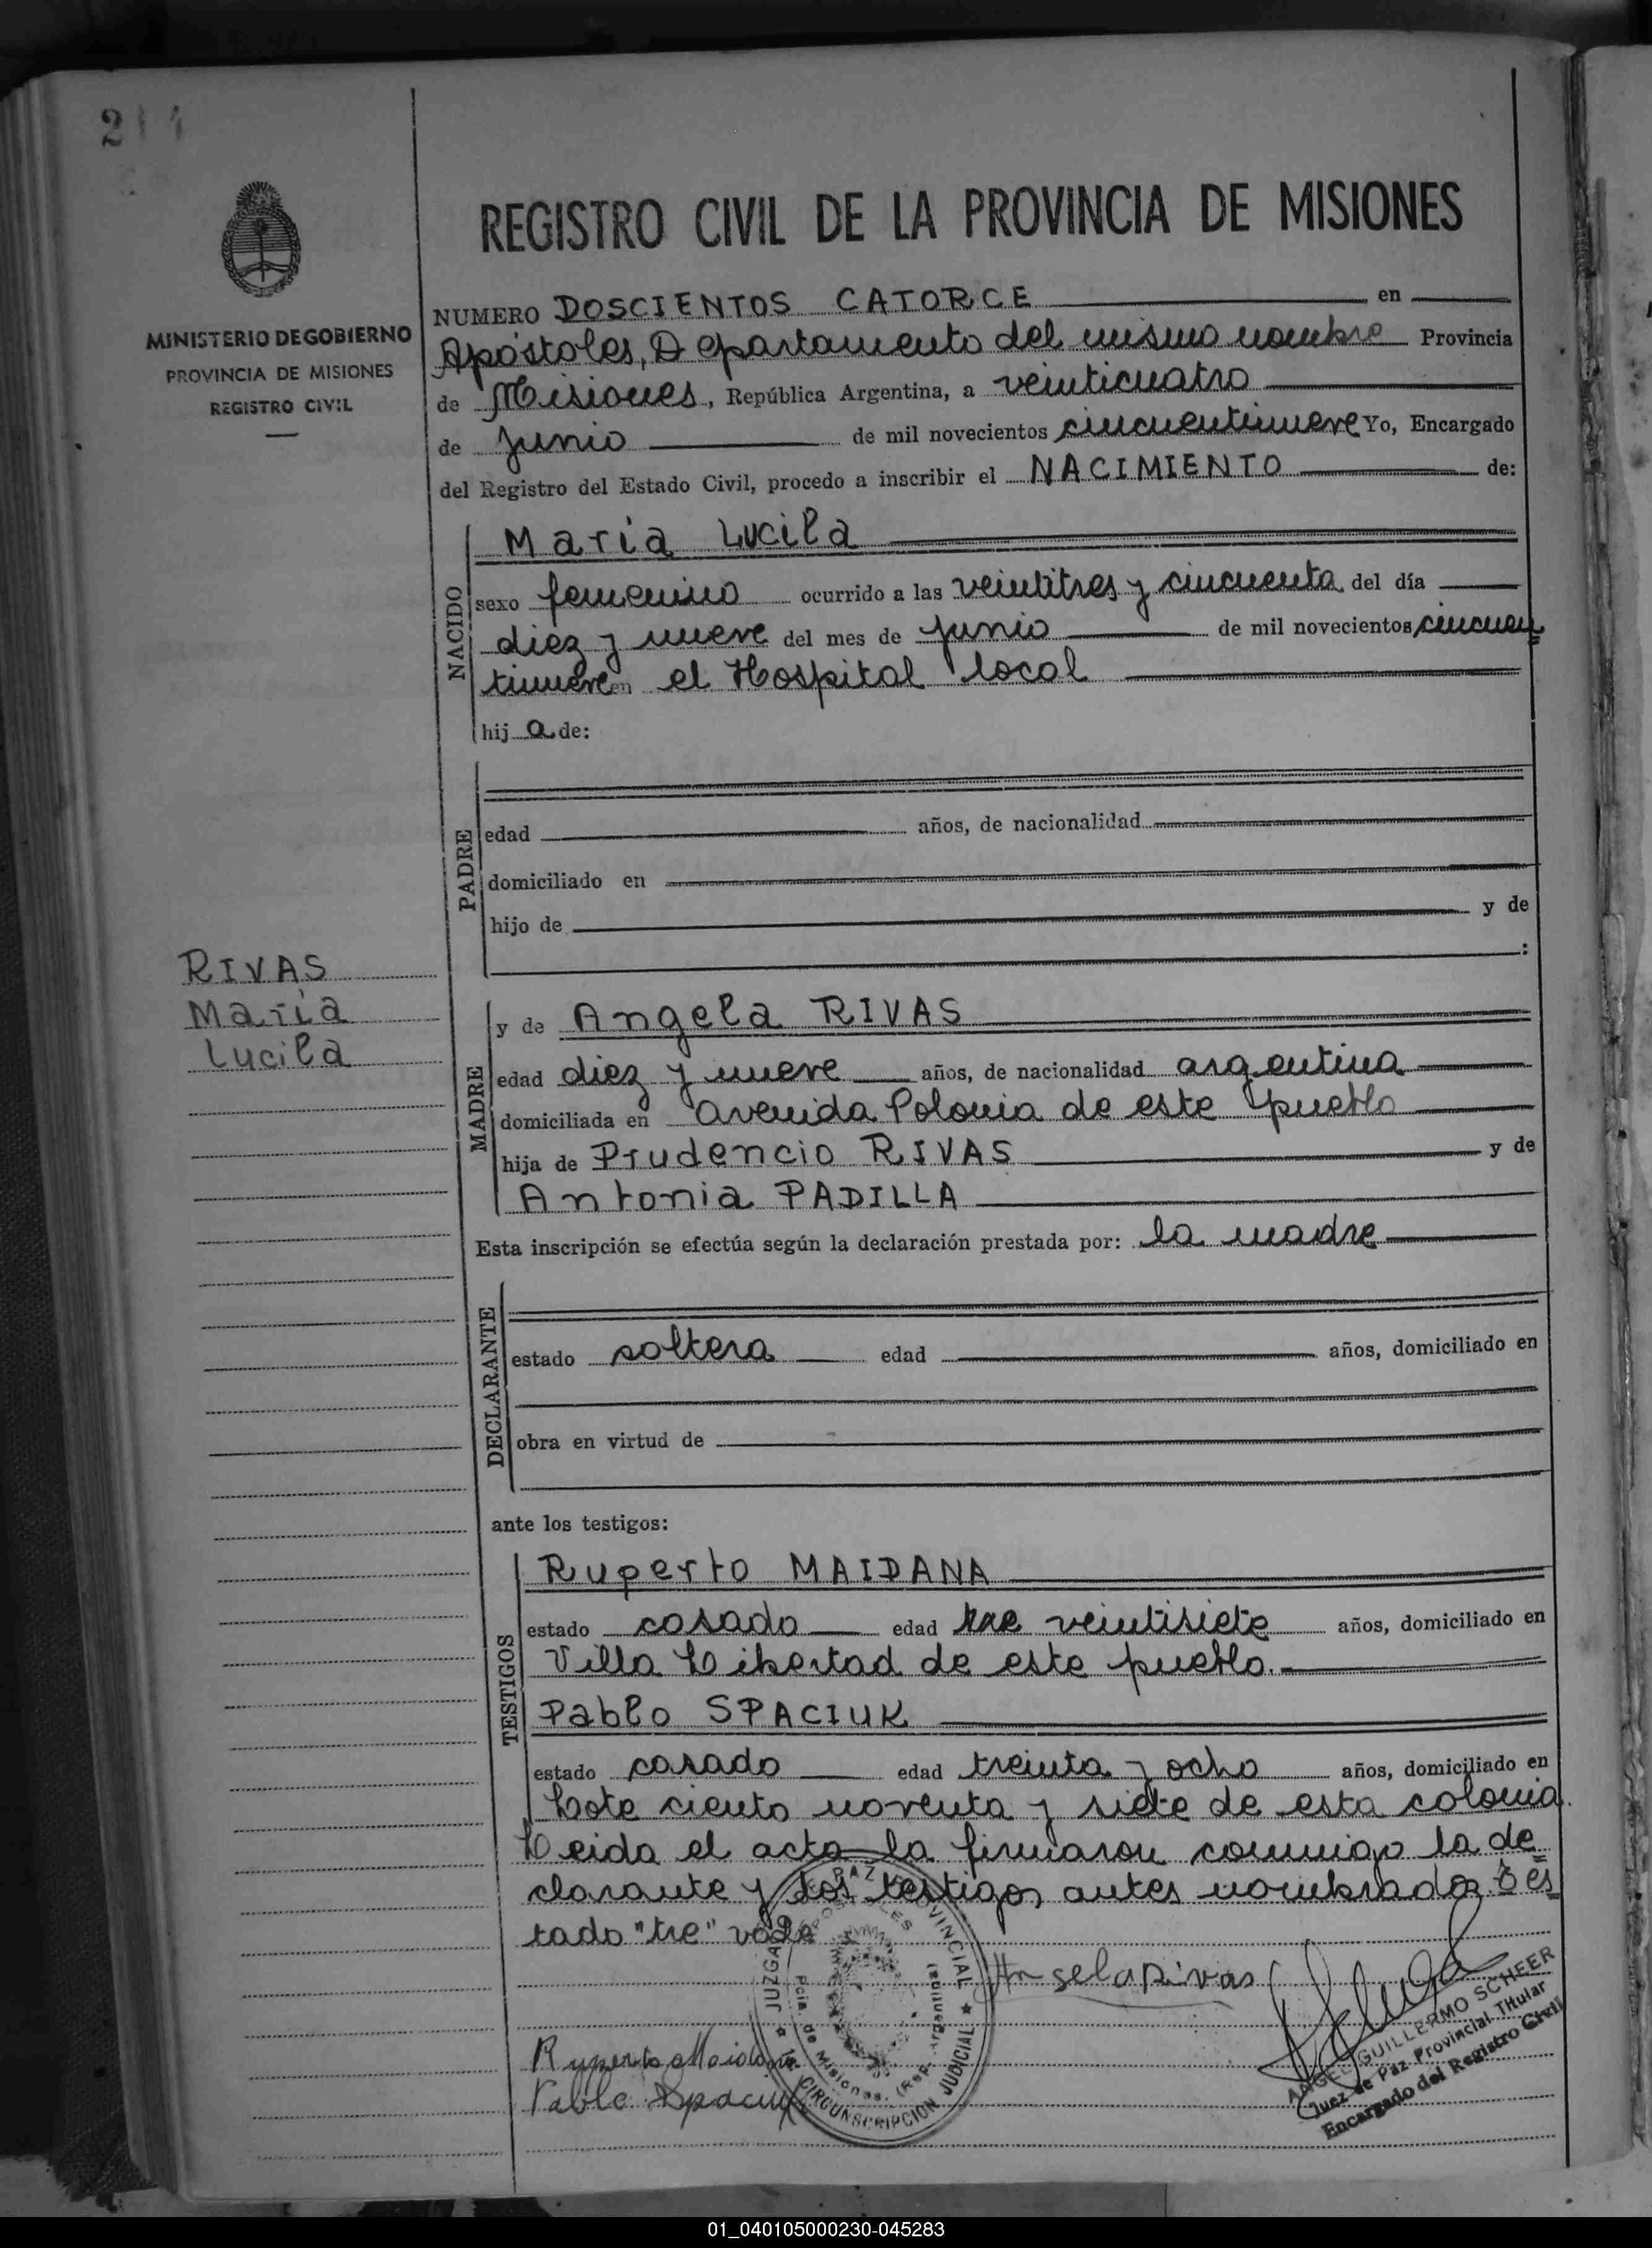 214
MINISTERIO DE GOBIERNO
PROVINCIA DE MISIONES
REGISTRO CIVIL
REGISTRO CIVIL DE LA PROVINCIA DE MISIONES
NUMERO DOSCIENTOS CATORCE en
Apóstoles, Departamento del mismo nombre Provincia
de Misiones, República Argentina, a veinticuatro
de junio de mil novecientos cincuentinueve Yo, Encargado
del Registro del Estado Civil, procedo a inscribir el NACIMIENTO de:
NACIDO
María Lucila
sexo femenino ocurrido a las veintitres y cincuenta del día
diez y nueve del mes de junio de mil novecientos cincuen
tinueve en el Hospital local
hij a de:
PADRE
edad años, de nacionalidad
domiciliado en
hijo de y de
:
RIVAS
María
Lucila
MADRE
y de Angela RIVAS
edad diez y nueve años, de nacionalidad argentina
domiciliada en avenida Polonia de este pueblo
hija de Prudencio RIVAS y de
Antonia PADILLA
Esta inscripción se efectúa según la declaración prestada por: la madre
DECLARANTE
estado soltera edad años, domiciliado en
obra en virtud de
ante los testigos:
TESTIGOS
Ruperto MAIDANA
estado casado edad tre veintisiete años, domiciliado en
Villa Libertad de este pueblo.
Pablo SPACIUK
estado casado edad treinta y ocho años, domiciliado en
Lote ciento noventa y siete de esta colonia.
Leida el acta la firmaron conmigo la de
clarante y los testigos antes nombrados. Tes
tado "tre" vale
JUZGADO DE PAZ PROVINCIAL
APOSTOLES
Pcia. de Misiones. (Rep. Argentina)
CIRCUNSCRIPCION JUDICIAL
Angela Rivas
Ruperto Maidana
Pablo Spaciuk
ANGEL GUILLERMO SCHEER
Juez de Paz Provincial Titular
Encargado del Registro Civil
01_040105000230-045283